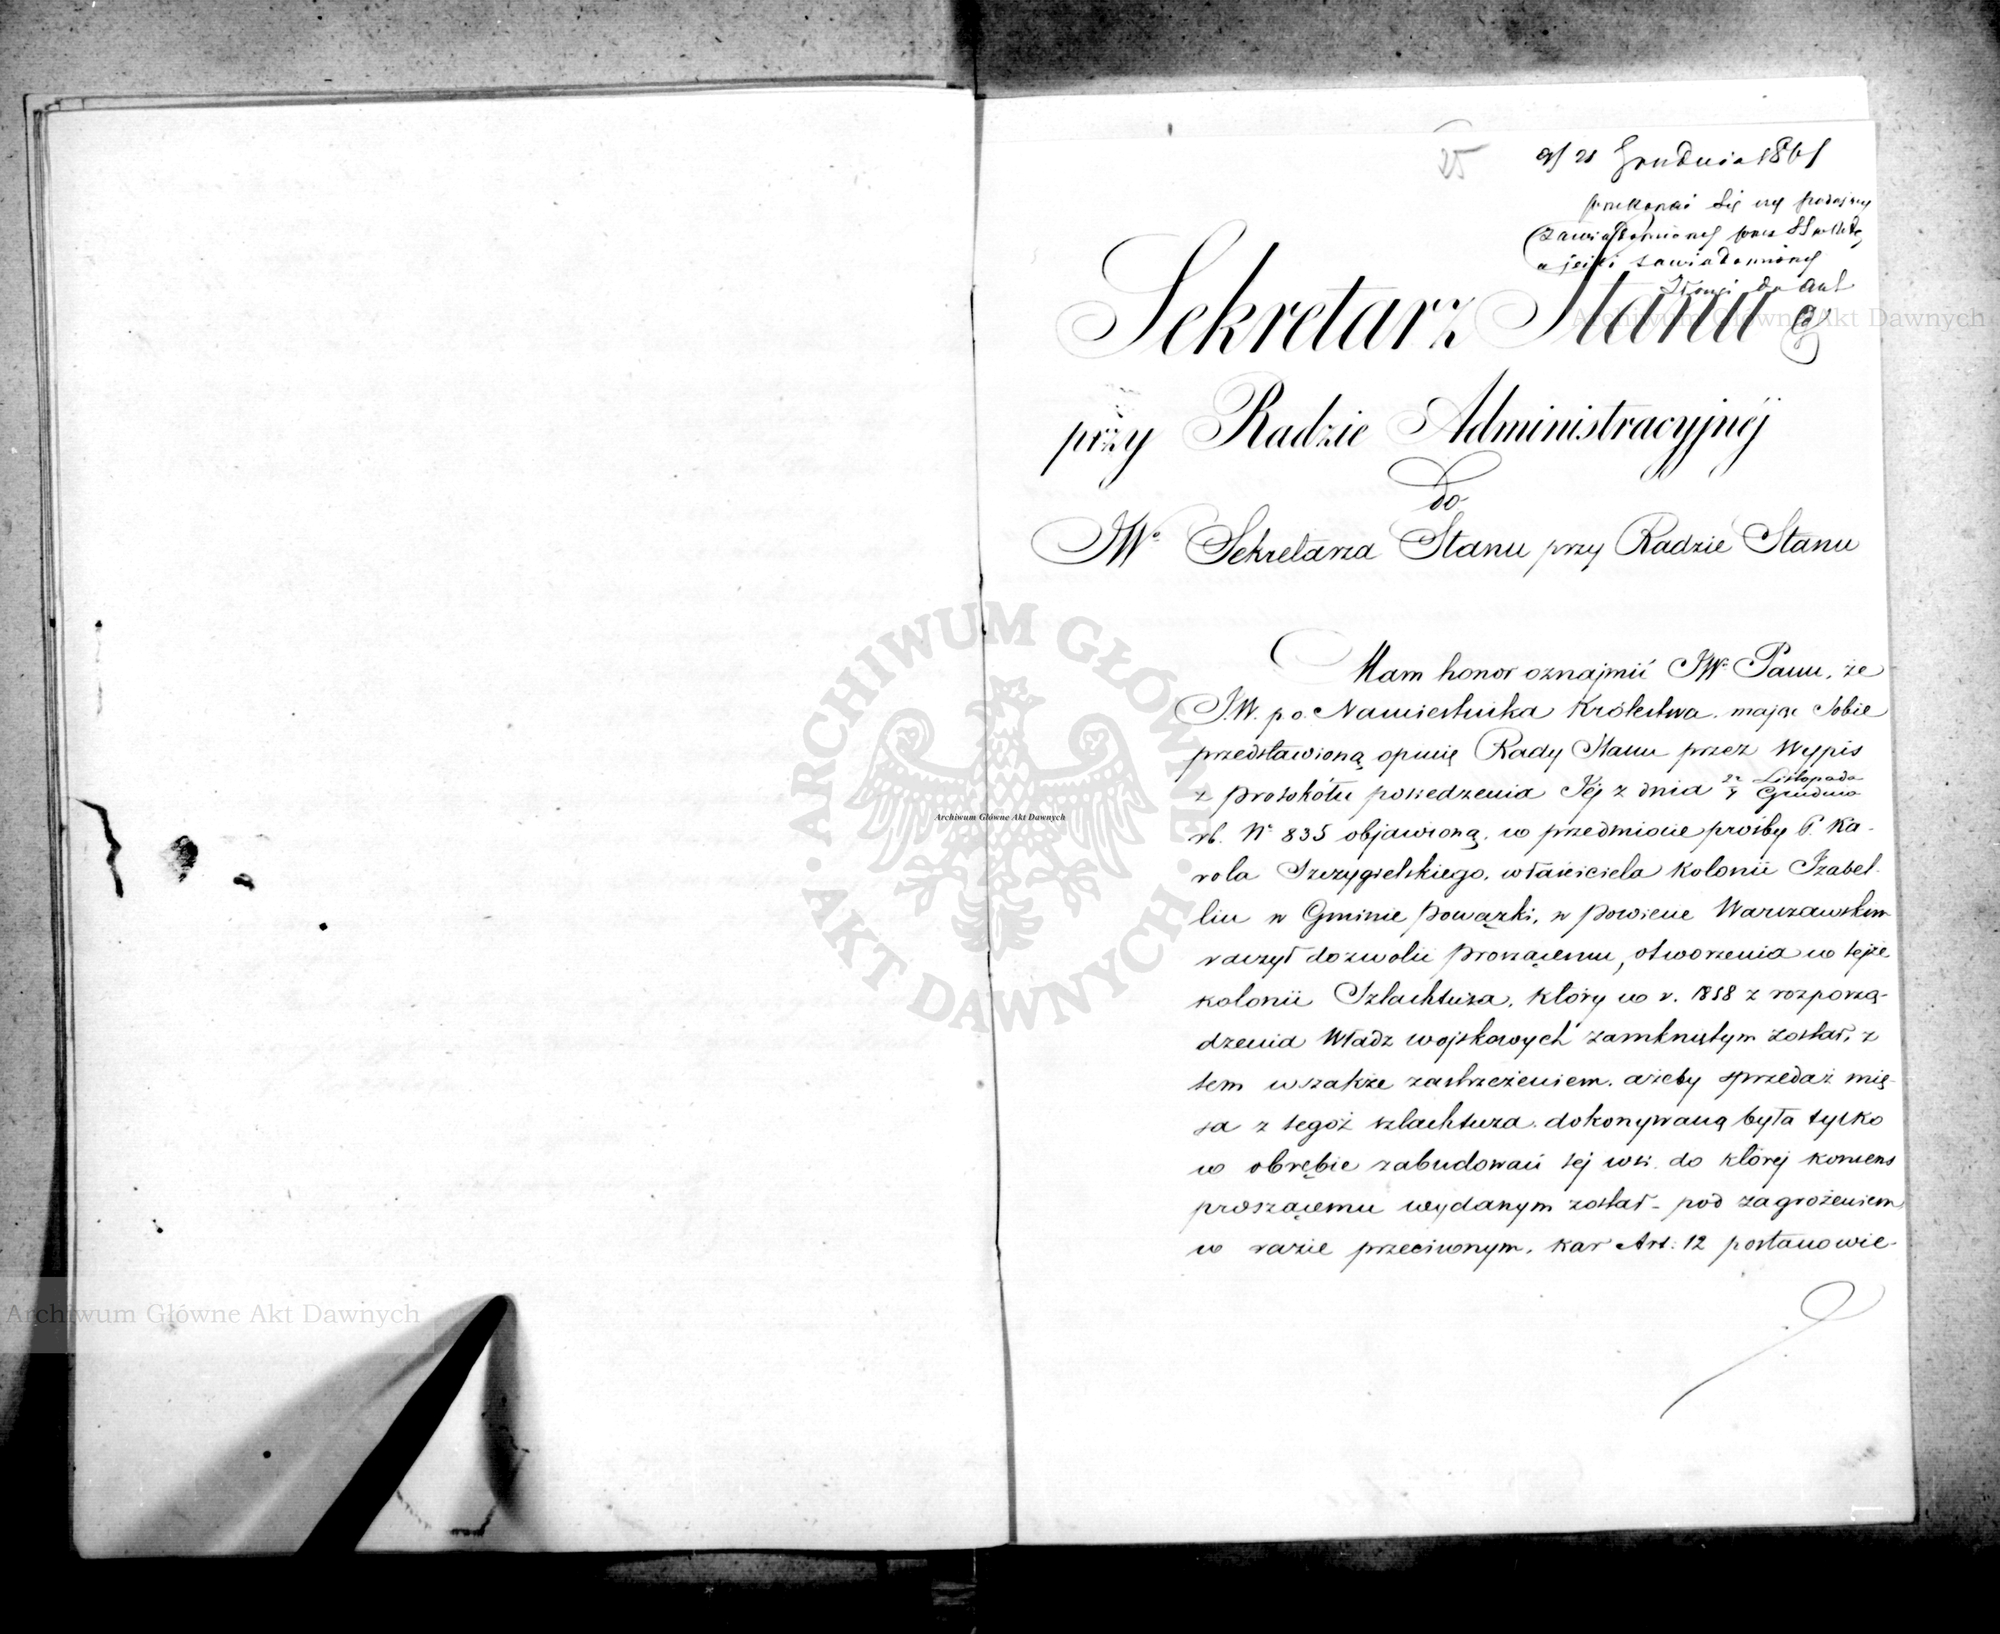 25
9/21 Grudnia 1861
przekonać się czy proszący
zawiadomiony przez
a jeżeli zawiadomiony
do akt
Sekretarz Stanu
przy Radzie Administracyjnéj
do
JWo Sekretarza Stanu przy Radzie Stanu
Mam honor oznajmić JW. Panu, że
J.W. p.o. Namiestnika Królestwa, mając Sobie
przedstawioną opinię Rady Stanu przez Wypis
z protokółu posiedzenia Jéj z dnia Listopada
Grudnia
rb. No 835 objawioną, w przedmiocie prośby P. Ka-
rola Szczygielskiego, właściciela Kolonii Izabel-
lin w Gminie Powązki, w Powiecie Warszawskim
raczył dozwolić proszącemu, otworzenia w tejże
kolonii Szlachtuza, który w r. 1858 z rozporzą-
dzenia Władz wojskowych zamkniętym został, z
tem wszakże zastrzeżeniem, ażeby sprzedaż mię-
sa z tegoż szlachtuza, dokonywaną była tylko
w obrębie zabudowań téj wsi, do któréj konsens
proszącemu wydanym został - pod zagrożeniem,
w razie przeciwnym, kar Art: 12 postanowie-
ARCHIWUM GŁÓWNE AKT DAWNYCH
Archiwum Główne Akt Dawnych
Archiwum Główne Akt Dawnych
Archiwum Główne Akt Dawnych